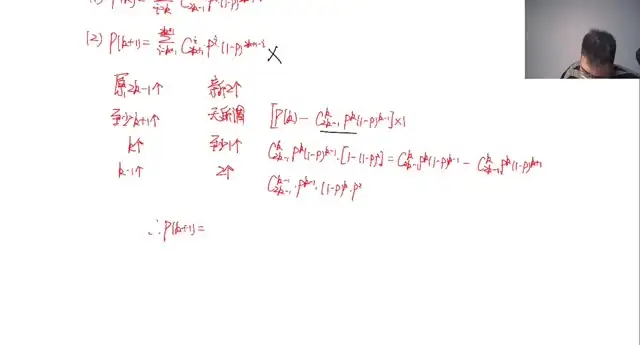 (1) P(k) = ∑ i=k C_{2k-1}^i P^i (1-P)
(2) P(k+1) = ∑_{i=k+1}^{2k+1} C_{2k+1}^i P^i (1-P)^{2k+1-i} ×
原2k-1个 新2个
至少k+1个 无所谓 [P(k) - C_{2k-1}^k P^k (1-P)^{k-1}]×1
k个 至少1个 C_{2k-1}^k P^k (1-P)^{k-1}·[1-(1-P)^2] = C_{2k-1}^k P^k (1-P)^{k-1} - C_{2k-1}^k P^k (1-P)^{k+1}
k-1个 2个 C_{2k-1}^{k-1}·P^{k-1}·(1-P)^k·P^2
∴P(k+1)=